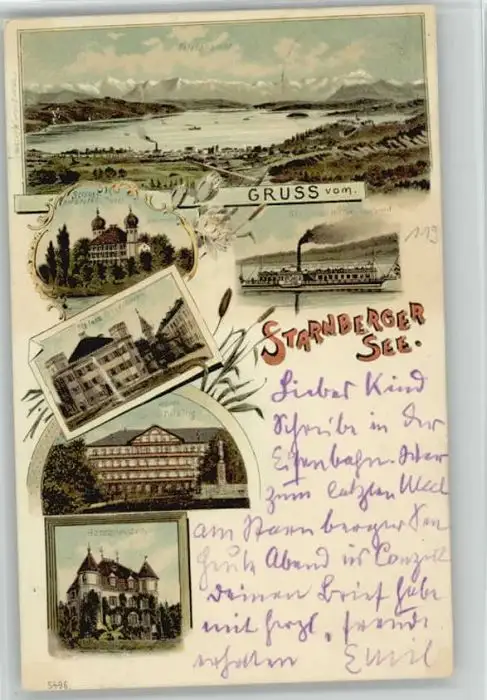 GRUSS vom
STARNBERGER
SEE.
119
Lieber Kind
Schreibe in der
Eisenbahn. War
zum letzten Mal
am Starnberger See
heute Abend is Conzert
Deinen Brief habe
mit herzl. Freude
erhalten Emil
5496